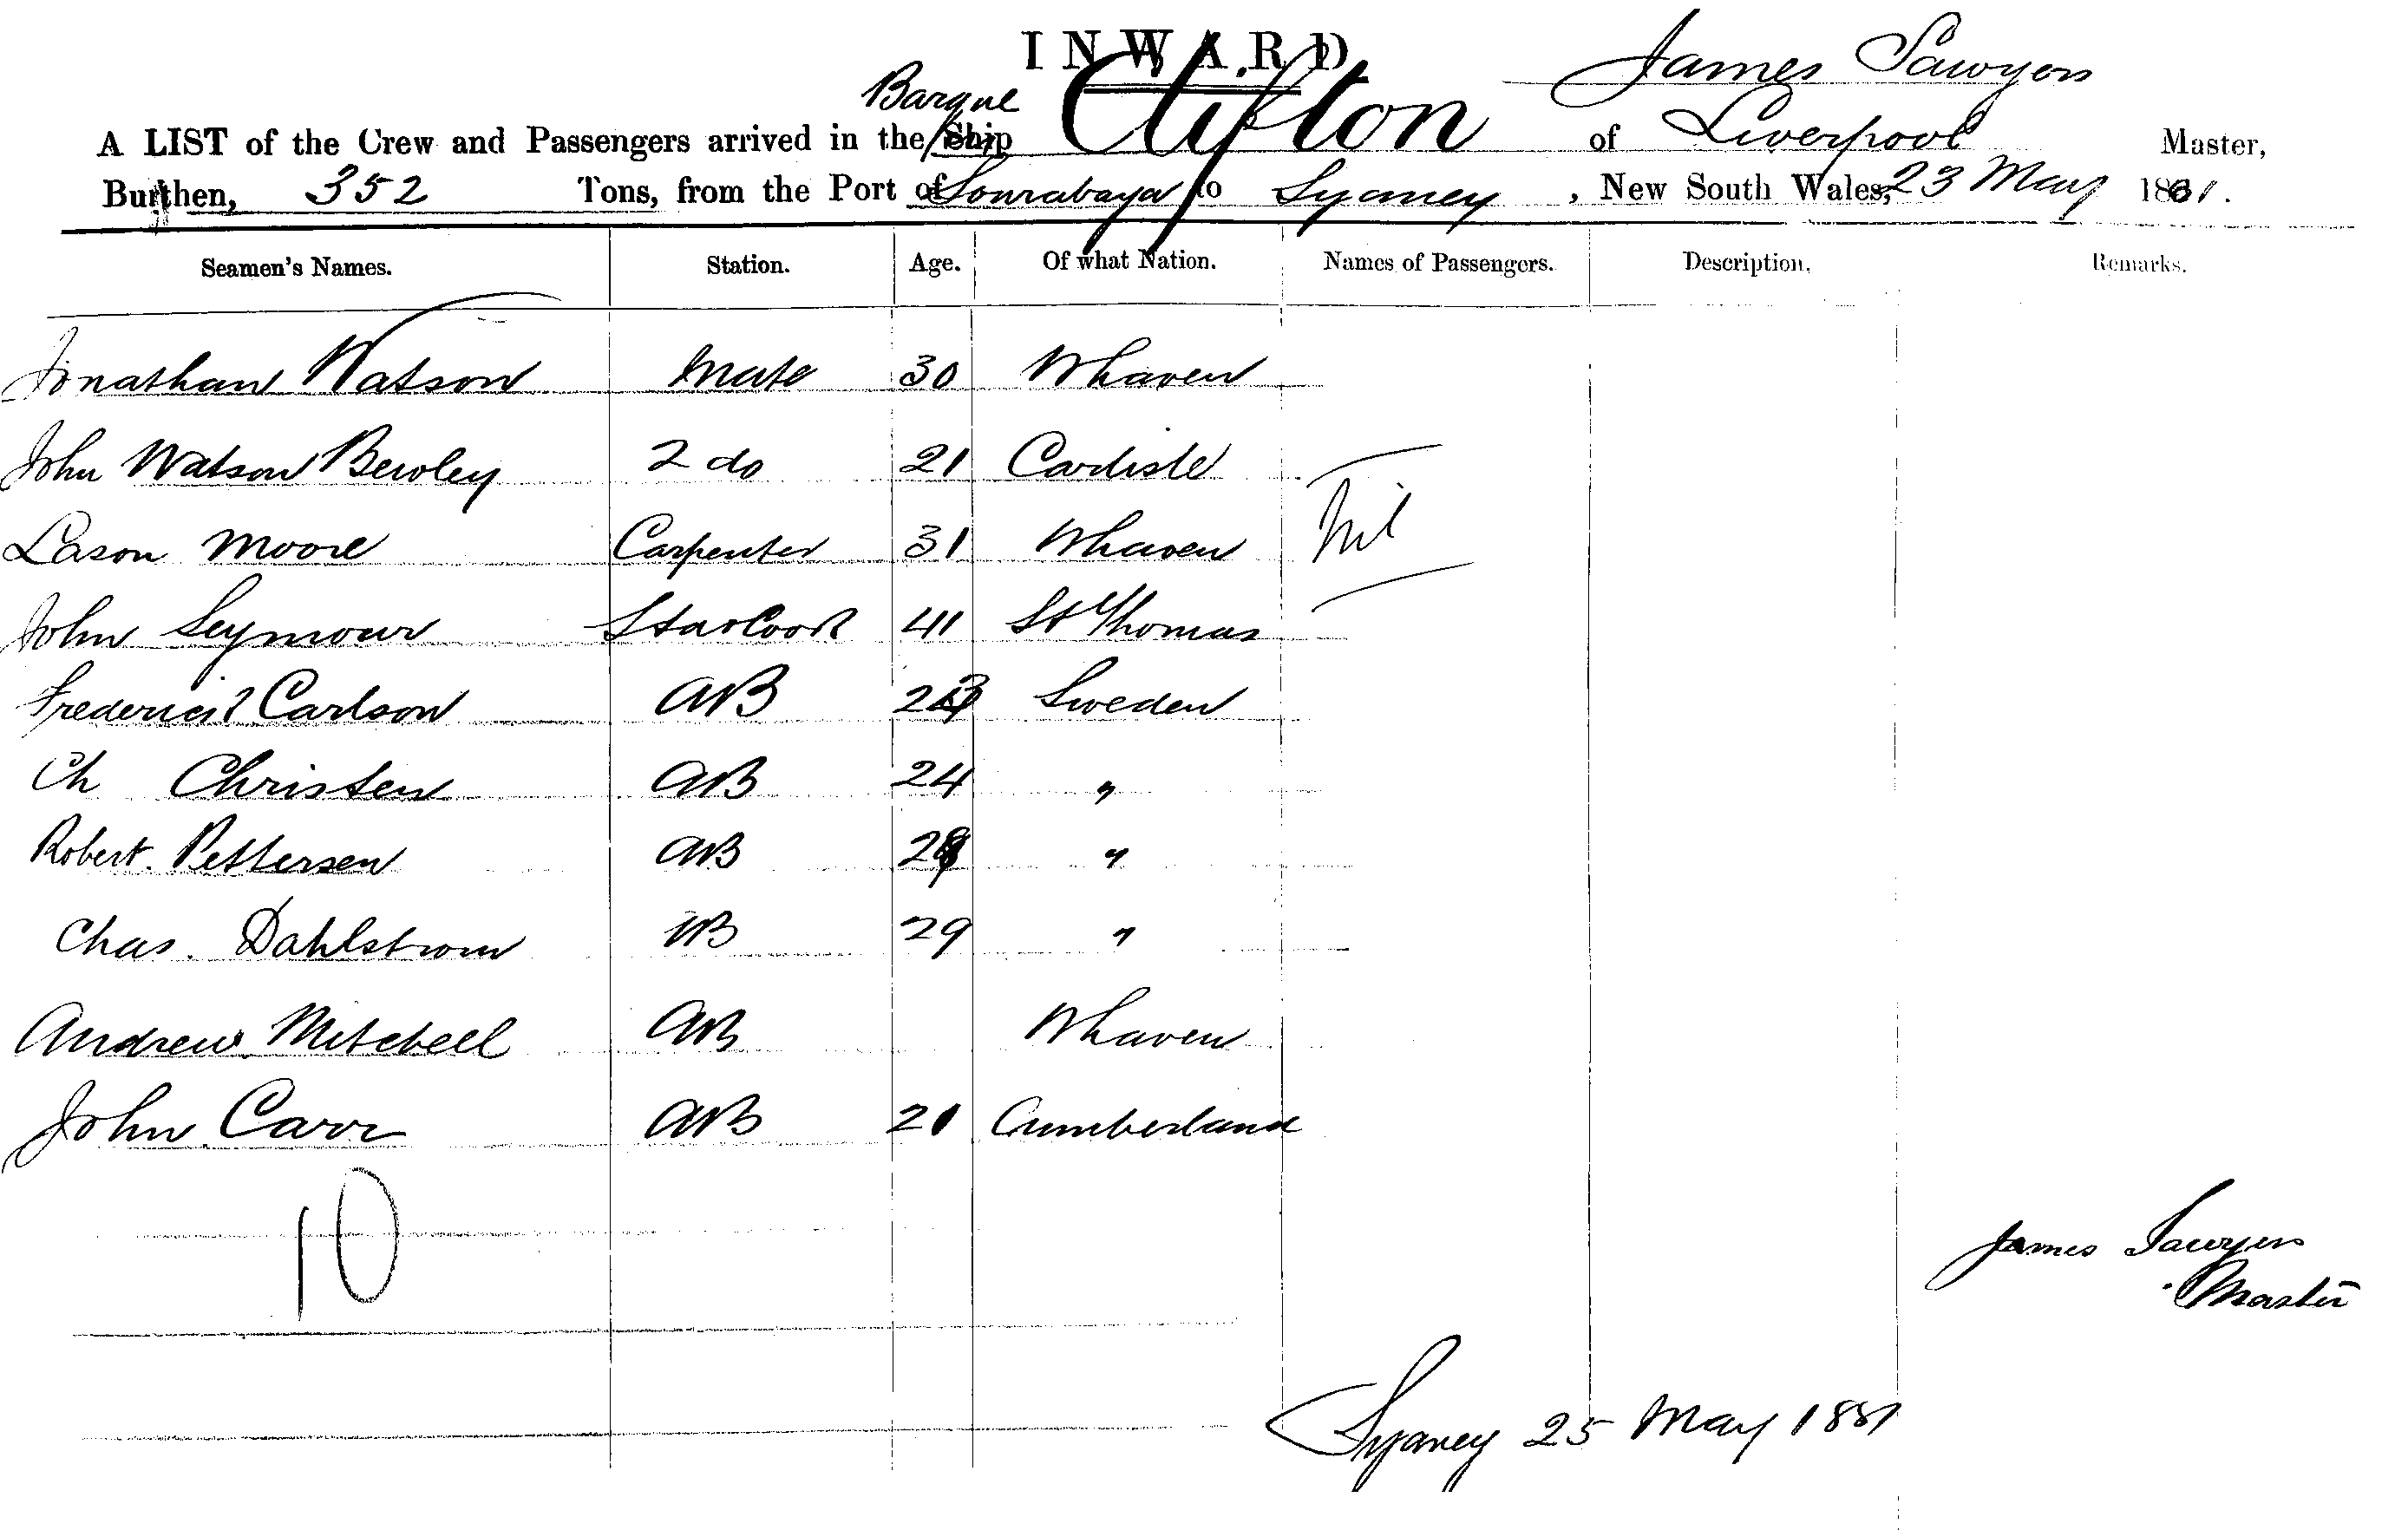 INWARD
James Sawyers
Barque Clifton
A LIST of the Crew and Passengers arrived in the Ship of Liverpool Master,
Burthen, 352 Tons, from the Port of Sourabaya to Sydney, New South Wales, 23 May 1881.
Seamen's Names. Station. Age. Of what Nation. Names of Passengers. Description. Remarks.
Jonathan Watson Mate 30 Whaven
John Watson Bewley 2 do 21 Carlisle
Moore Carpenter 31 Whaven Nil
John Seymour 41 St Thomas
Frederick Carlson AB Sweden
Ch Christen AB 24 "
Robert Pettersen AB "
Chas. Dahlstrom AB 29 "
Andrew Mitchell AB Whaven
John Carr AB 21 Cumberland
10
James Sawyers
Master
Sydney 25 May 1881